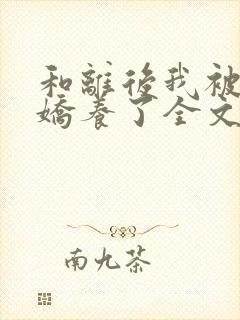 和離後我被
嬌養了全文
南九茶